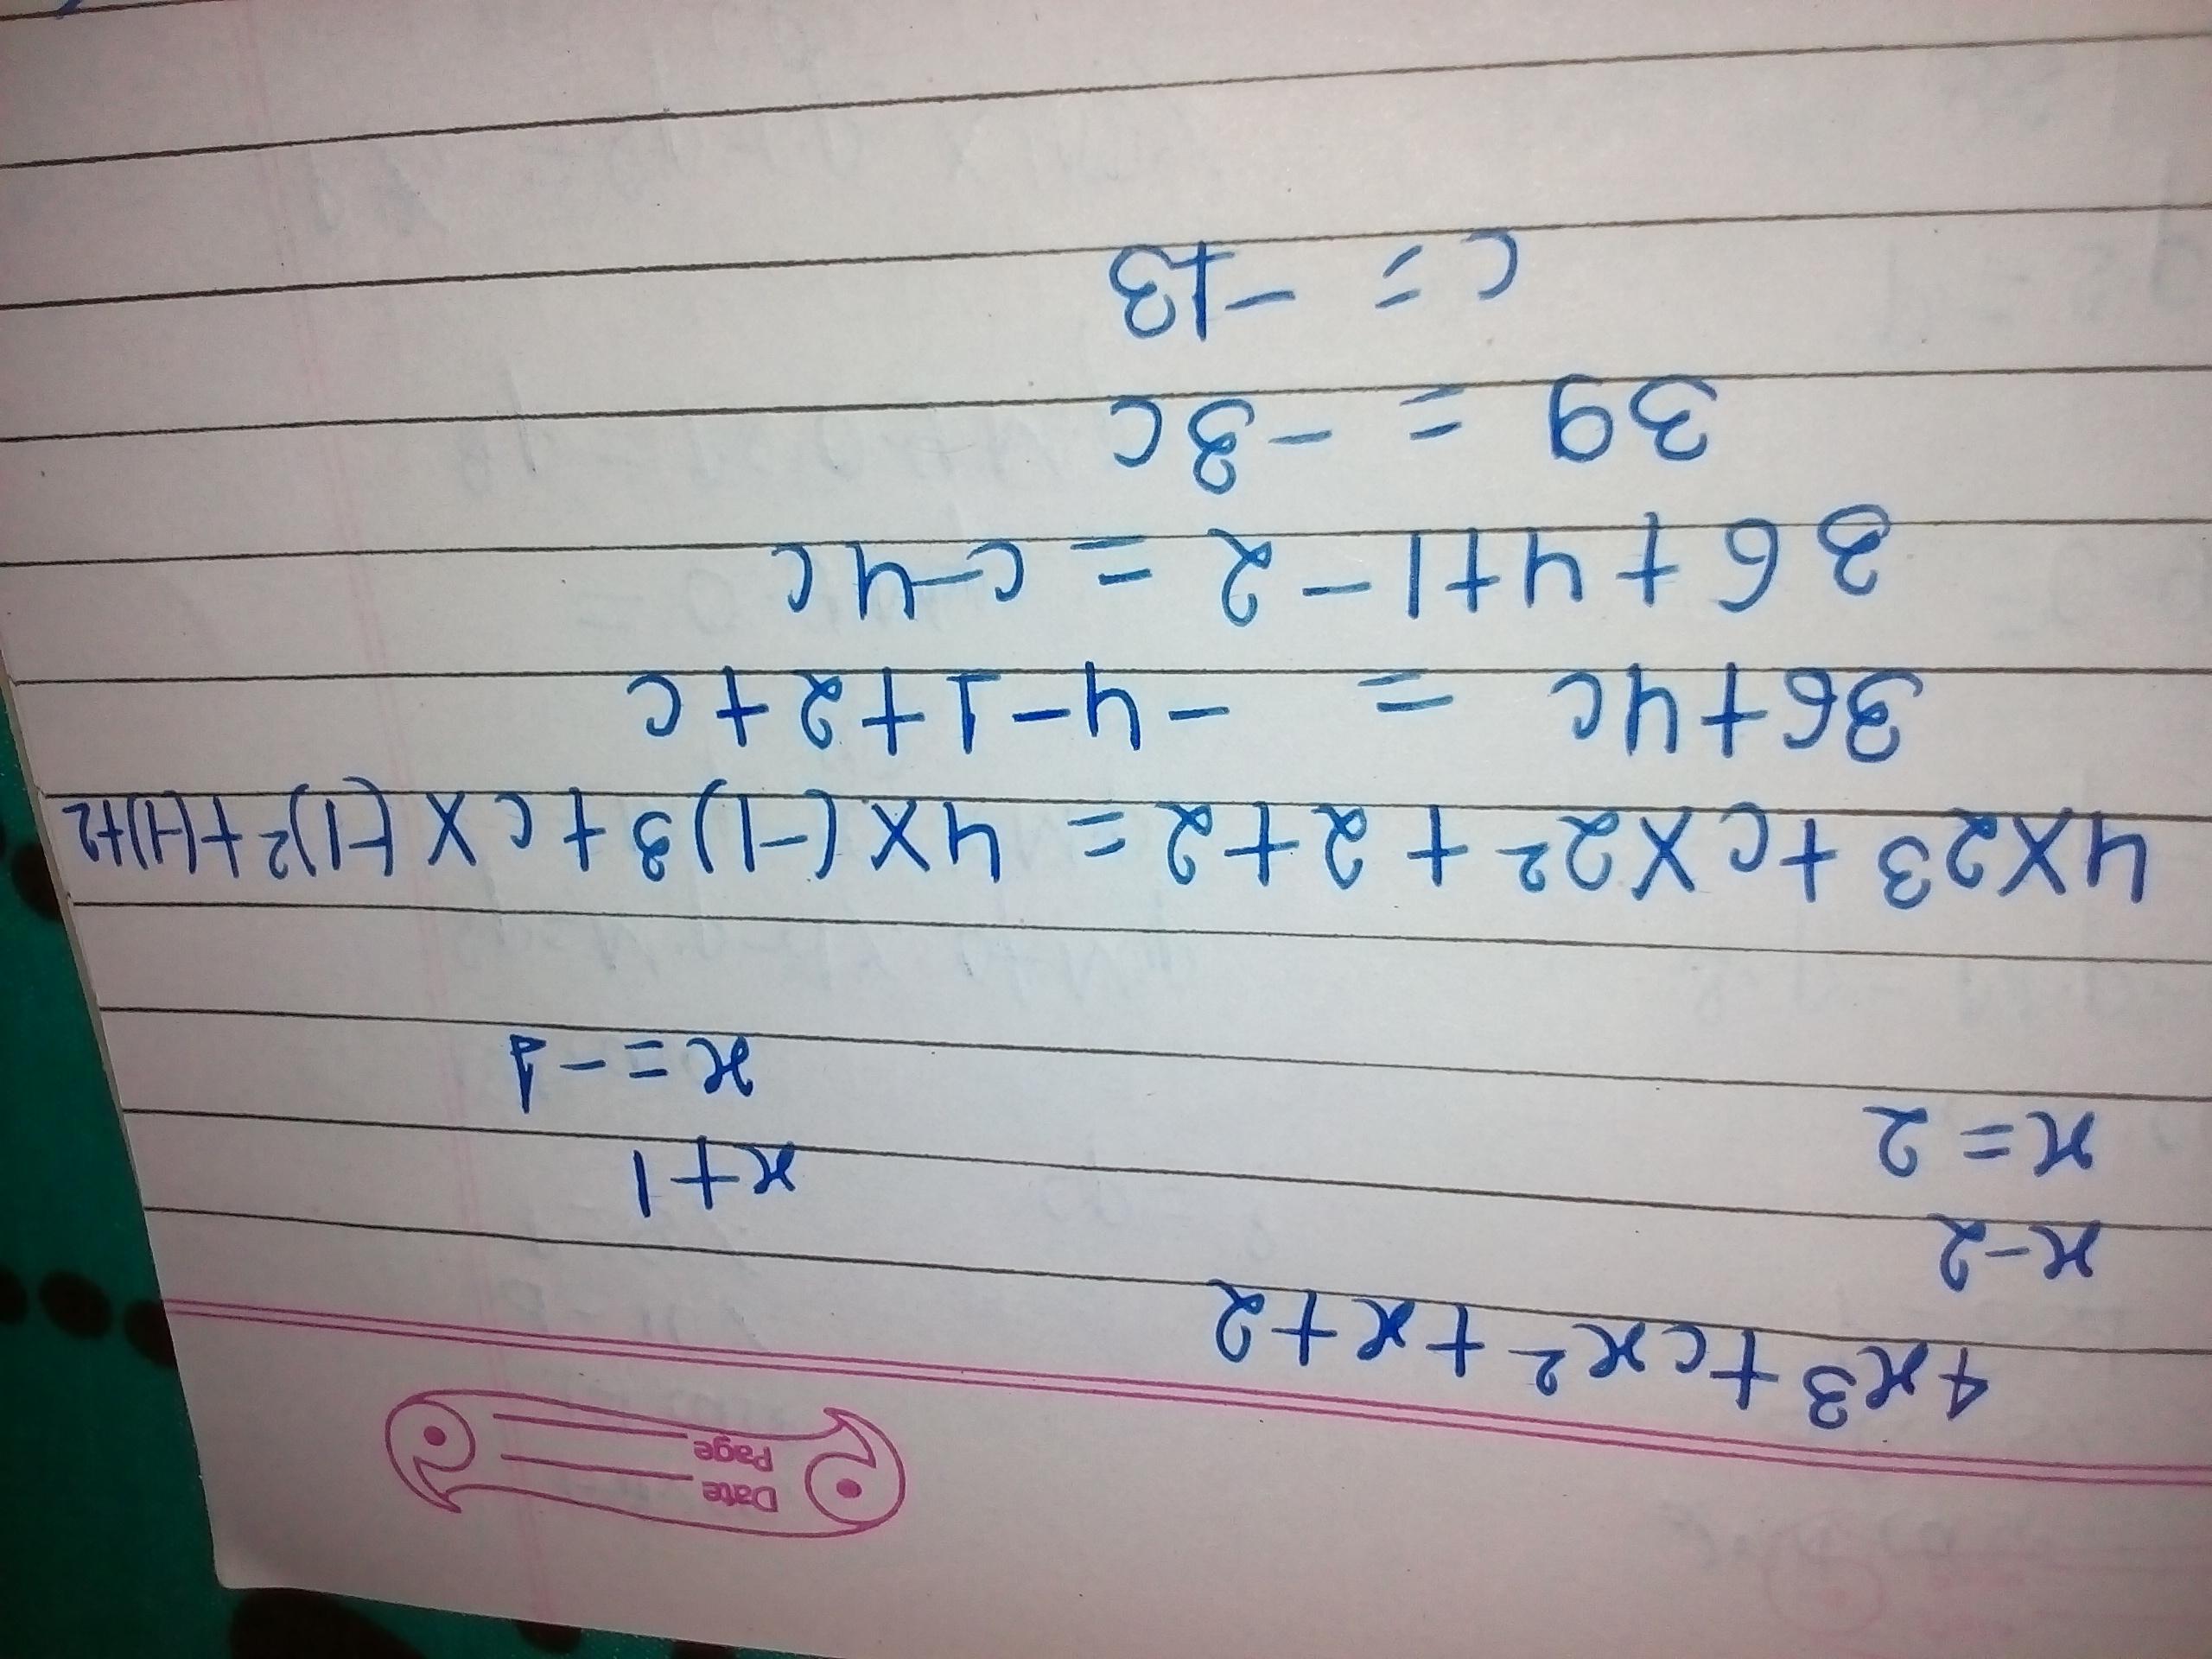 Date
Page
4x³ + cx² + x + 2
x-2
x+1
x = 2
x = -1
4×2³ + c×2² + 2 + 2 = 4×(-1)³ + c×(-1)² + (-1)+2
36+4c = -4-1+2+c
36+4+1-2 = c-4c
39 = -3c
c = -13